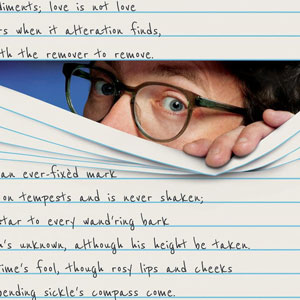 diments; love is not love
rs when it alteration finds,
th the remover to remove.
an ever-fixèd mark
on tempests and is never shaken;
star to every wand'ring bark
h's unknown, although his height be taken.
ime's fool, though rosy lips and cheeks
bending sickle's compass come.